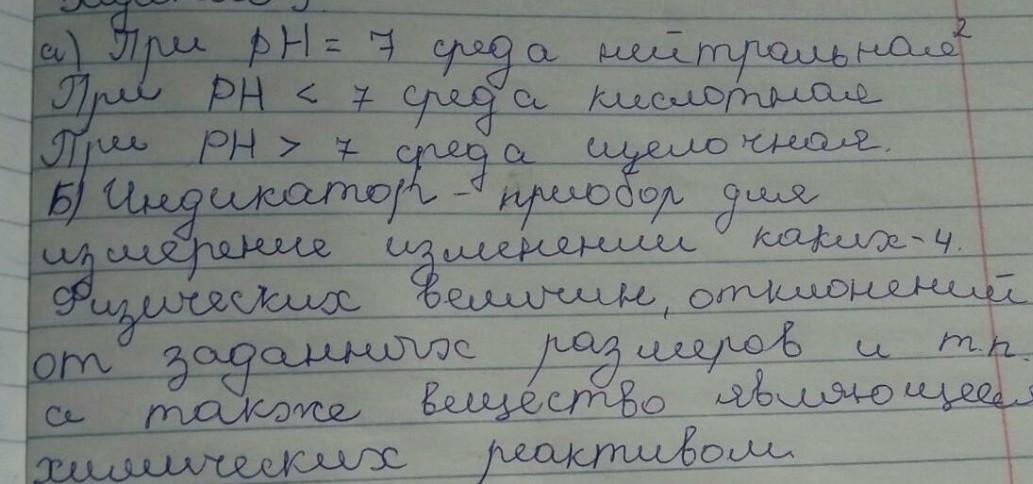 а) При pH = 7 среда нейтральная 2
При PH < 7 среда кислотная
При PH > 7 среда щелочная.
Б) Индикатор - приобор для
измерение изменении каких-ч.
Физических величин, отклонений
от заданных размеров и т.п.
а также вещество являющееся
химических реактивом